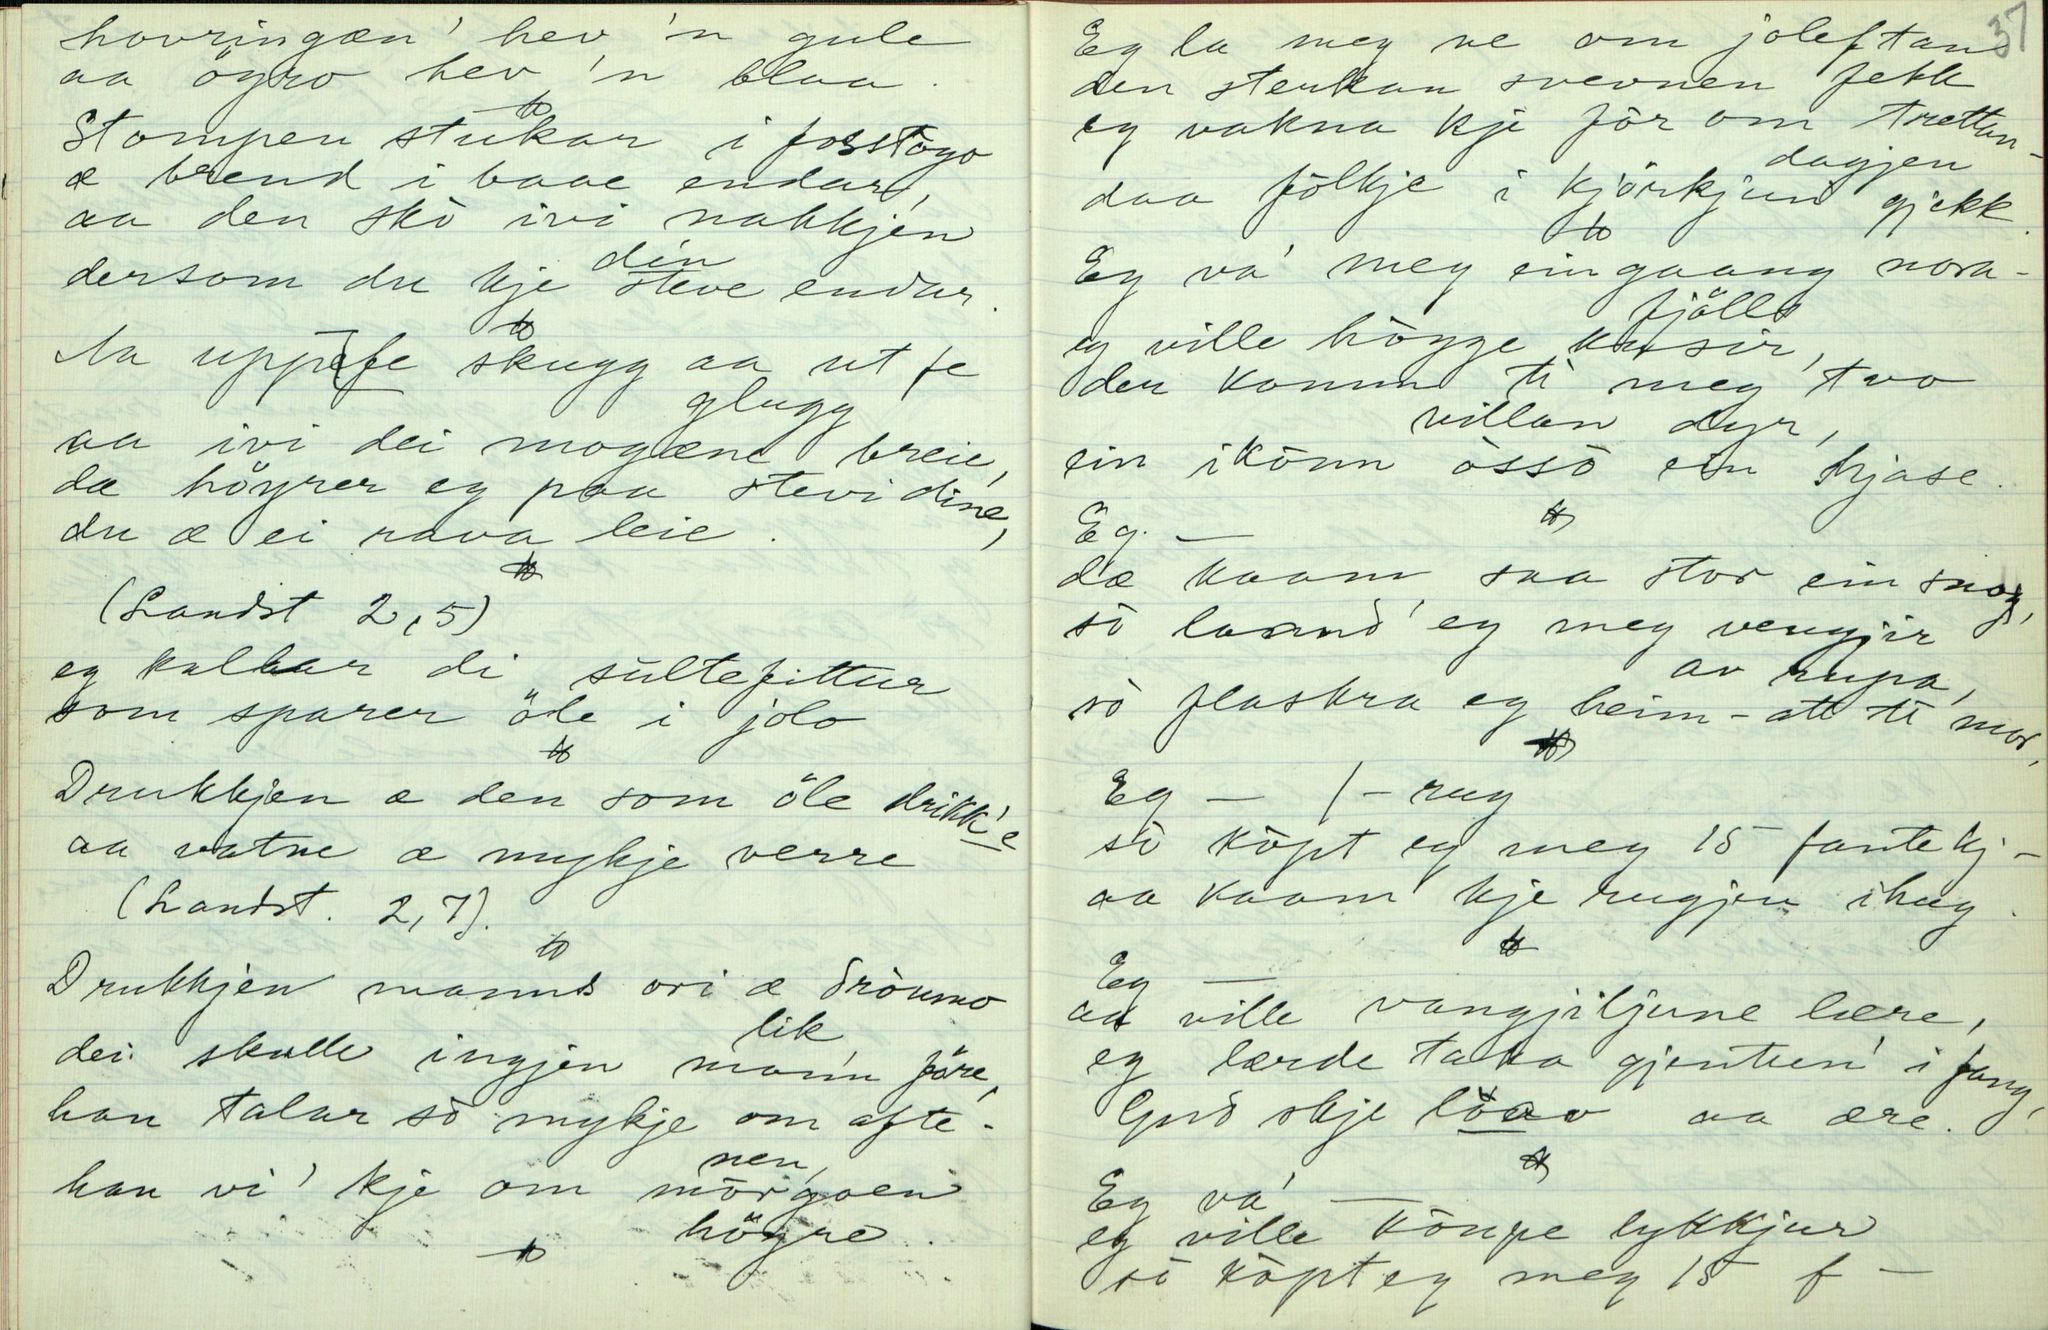 hovringæn' hev 'n gule
aa ögro hev 'n blaa.
Stompen stukar i forstògo
æ brend i baae endar,
aa den skò ivi nakkjen
dersom du kje din
steve endar.
Aa uppefe skugg aa ut fe
glugg
aa ivi dei mogæne breie,
dæ höyrer eg paa stevi dine,
du æ ei rava leie.
(Landst 2,5)
eg kallar di sultefittur
som sparer öle i jolo
Drukkjen æ den som öle drikk'e
aa vatne æ mykje verre
(Landst. 2,7).
Drukkjen manns ori æ dròumo
lik
dei skulle ingjen mann före,
han talar sò mykje om afte-
nen,
han vi' kje om mòrgoen
höyre.
37
Eg la meg ne om joleftan
den sterkan svevnen fekk
eg vakna kje för om trettan-
dagjen
daa fölkje i kjörkjun gjekk.
Eg va' meg ein gaang nora-
fjölls
eg ville högge kvsir,
der komm ti meg tvo
villan dyr,
ein ikònn òssò ein hjase.
Eg. —
dæ kaam saa stor ein snog,
sò laand' eg meg vengjir
av rupa,
sò flaskra eg heim-att ti mor,
Eg — / - rug
sò köpt eg meg 15 fantekj-
aa kaam kje rugjen ihug.
Eg —
aa ville vangjiljune lære,
eg lærde taka gjentun' i fang,
Gud skje löav aa ære.
Eg va' —
eg ville kòupe lykkjur
sò köpt eg meg 15 f —